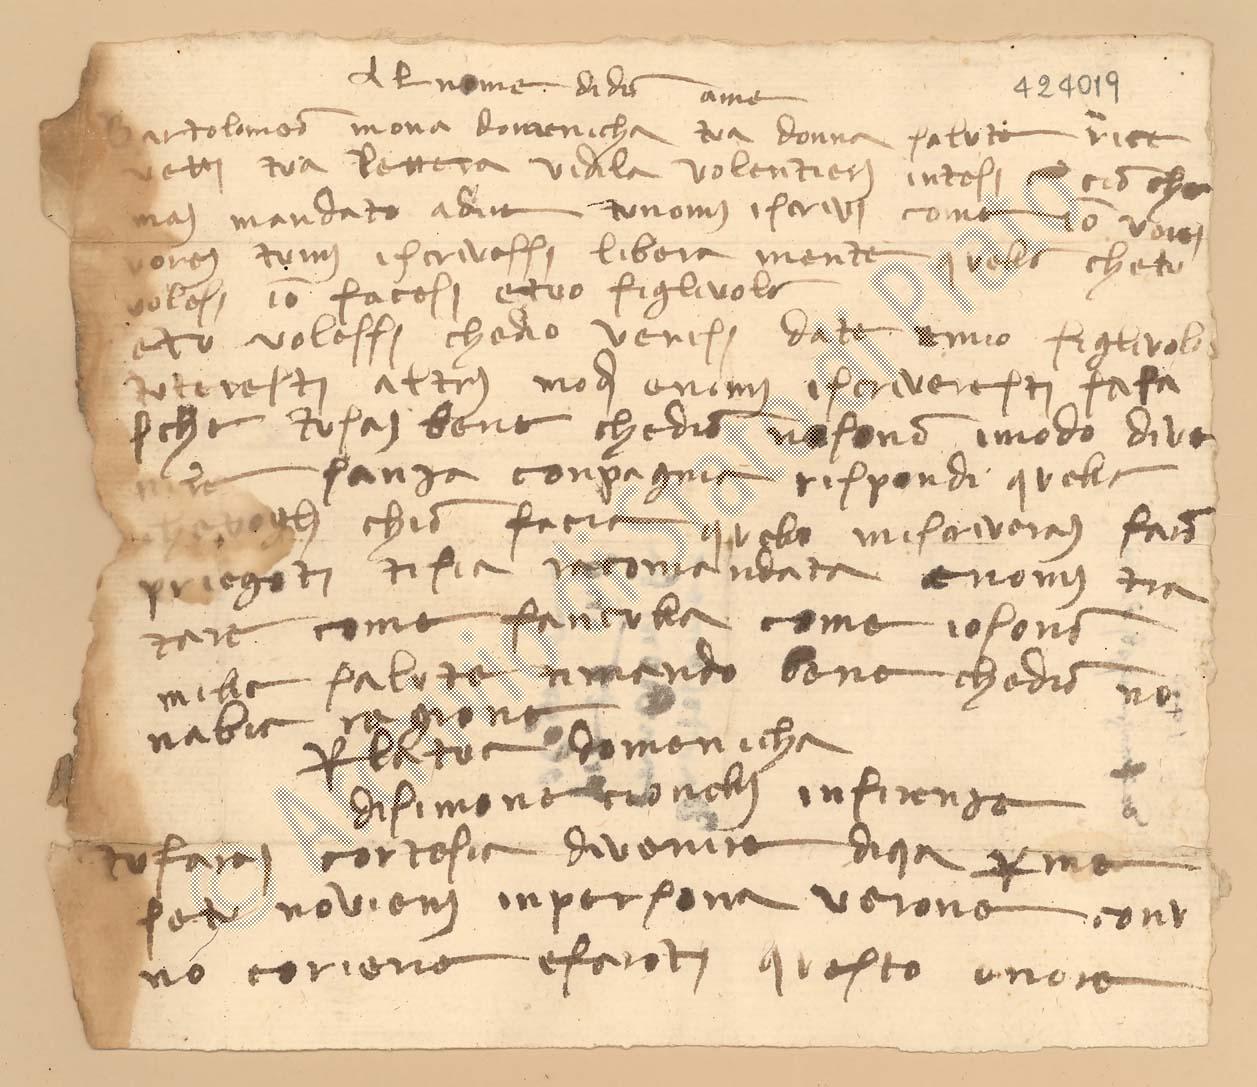 Al nome di dio ame
424019
Bartolomeo mona domenicha tua donna salute ricie
vetti tua lettera vidila volentieri intesi ciò che
mai mandato a dire tu nomi iscrivi come io vorei
vorei tu mi iscrivessi libera mente quello che tu
volesi io facesi e tuo figlivolo
e tu volessi che dio venisi da te e mio figlivolo
tu teresti altri modi e nomi iscriveresti
sche tu sai bene che dio no sono i modo di ve
nire sanza conpagnia rispondi quello
che vogli chio facia quelo mi scriverai farò
priegoti ti sia racomandata e nomi tra
tare come fanculla come io sono
mille salute ti mando bene che dio no
nabia ragione
p la tua domenicha
di simone cionelli in firenze
tu farai cortesia di venire di qua p me
se tu no vieni in persona verone conu
no coriere e faroti questo onore
© Archivio di Stato di Prato